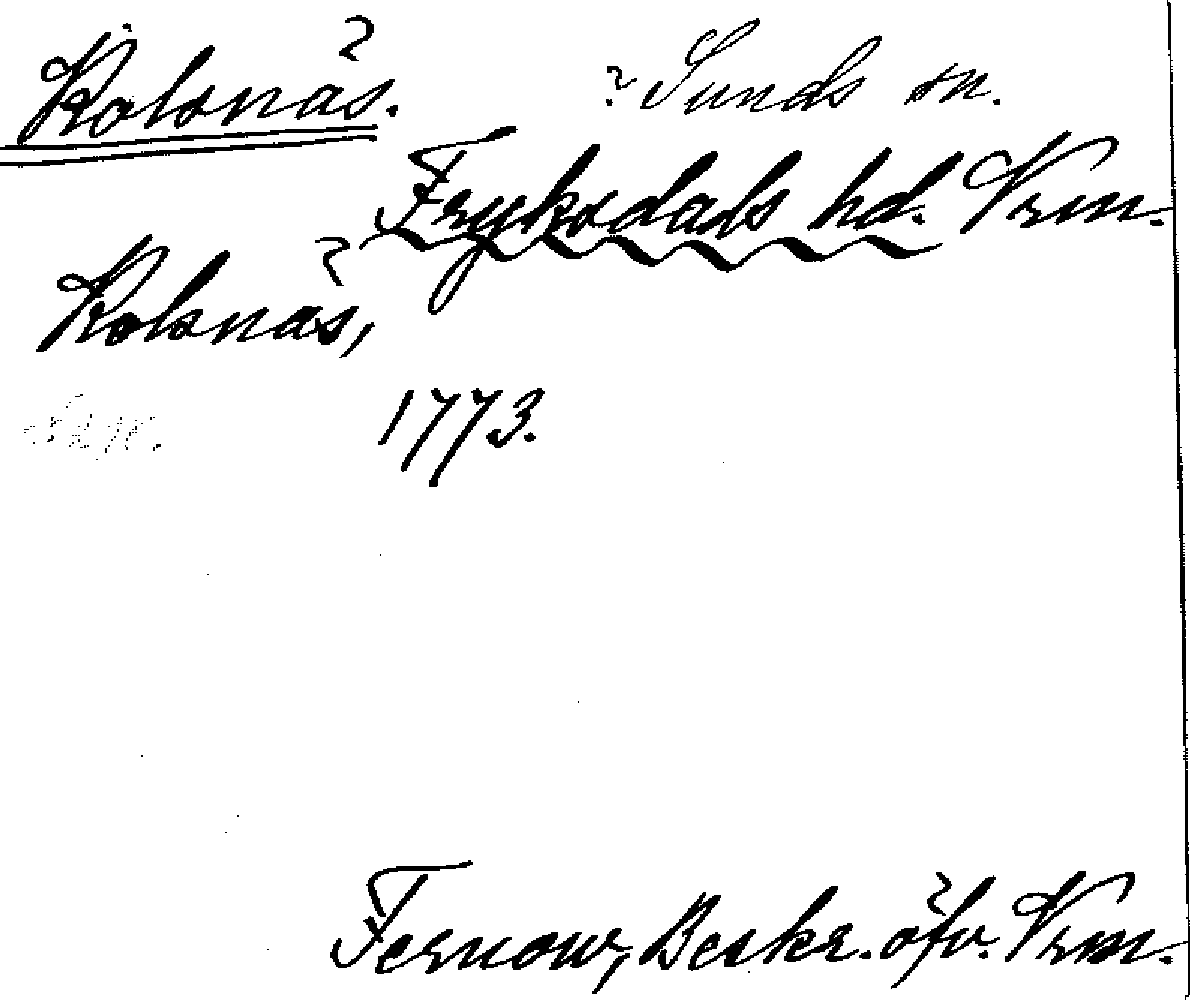 Kolsnäs. ? Sunds sn.
Fryksdals hd. Vrm.
Kolsnäs,
1773.
Fernow, Beskr. öfv. Vrm.